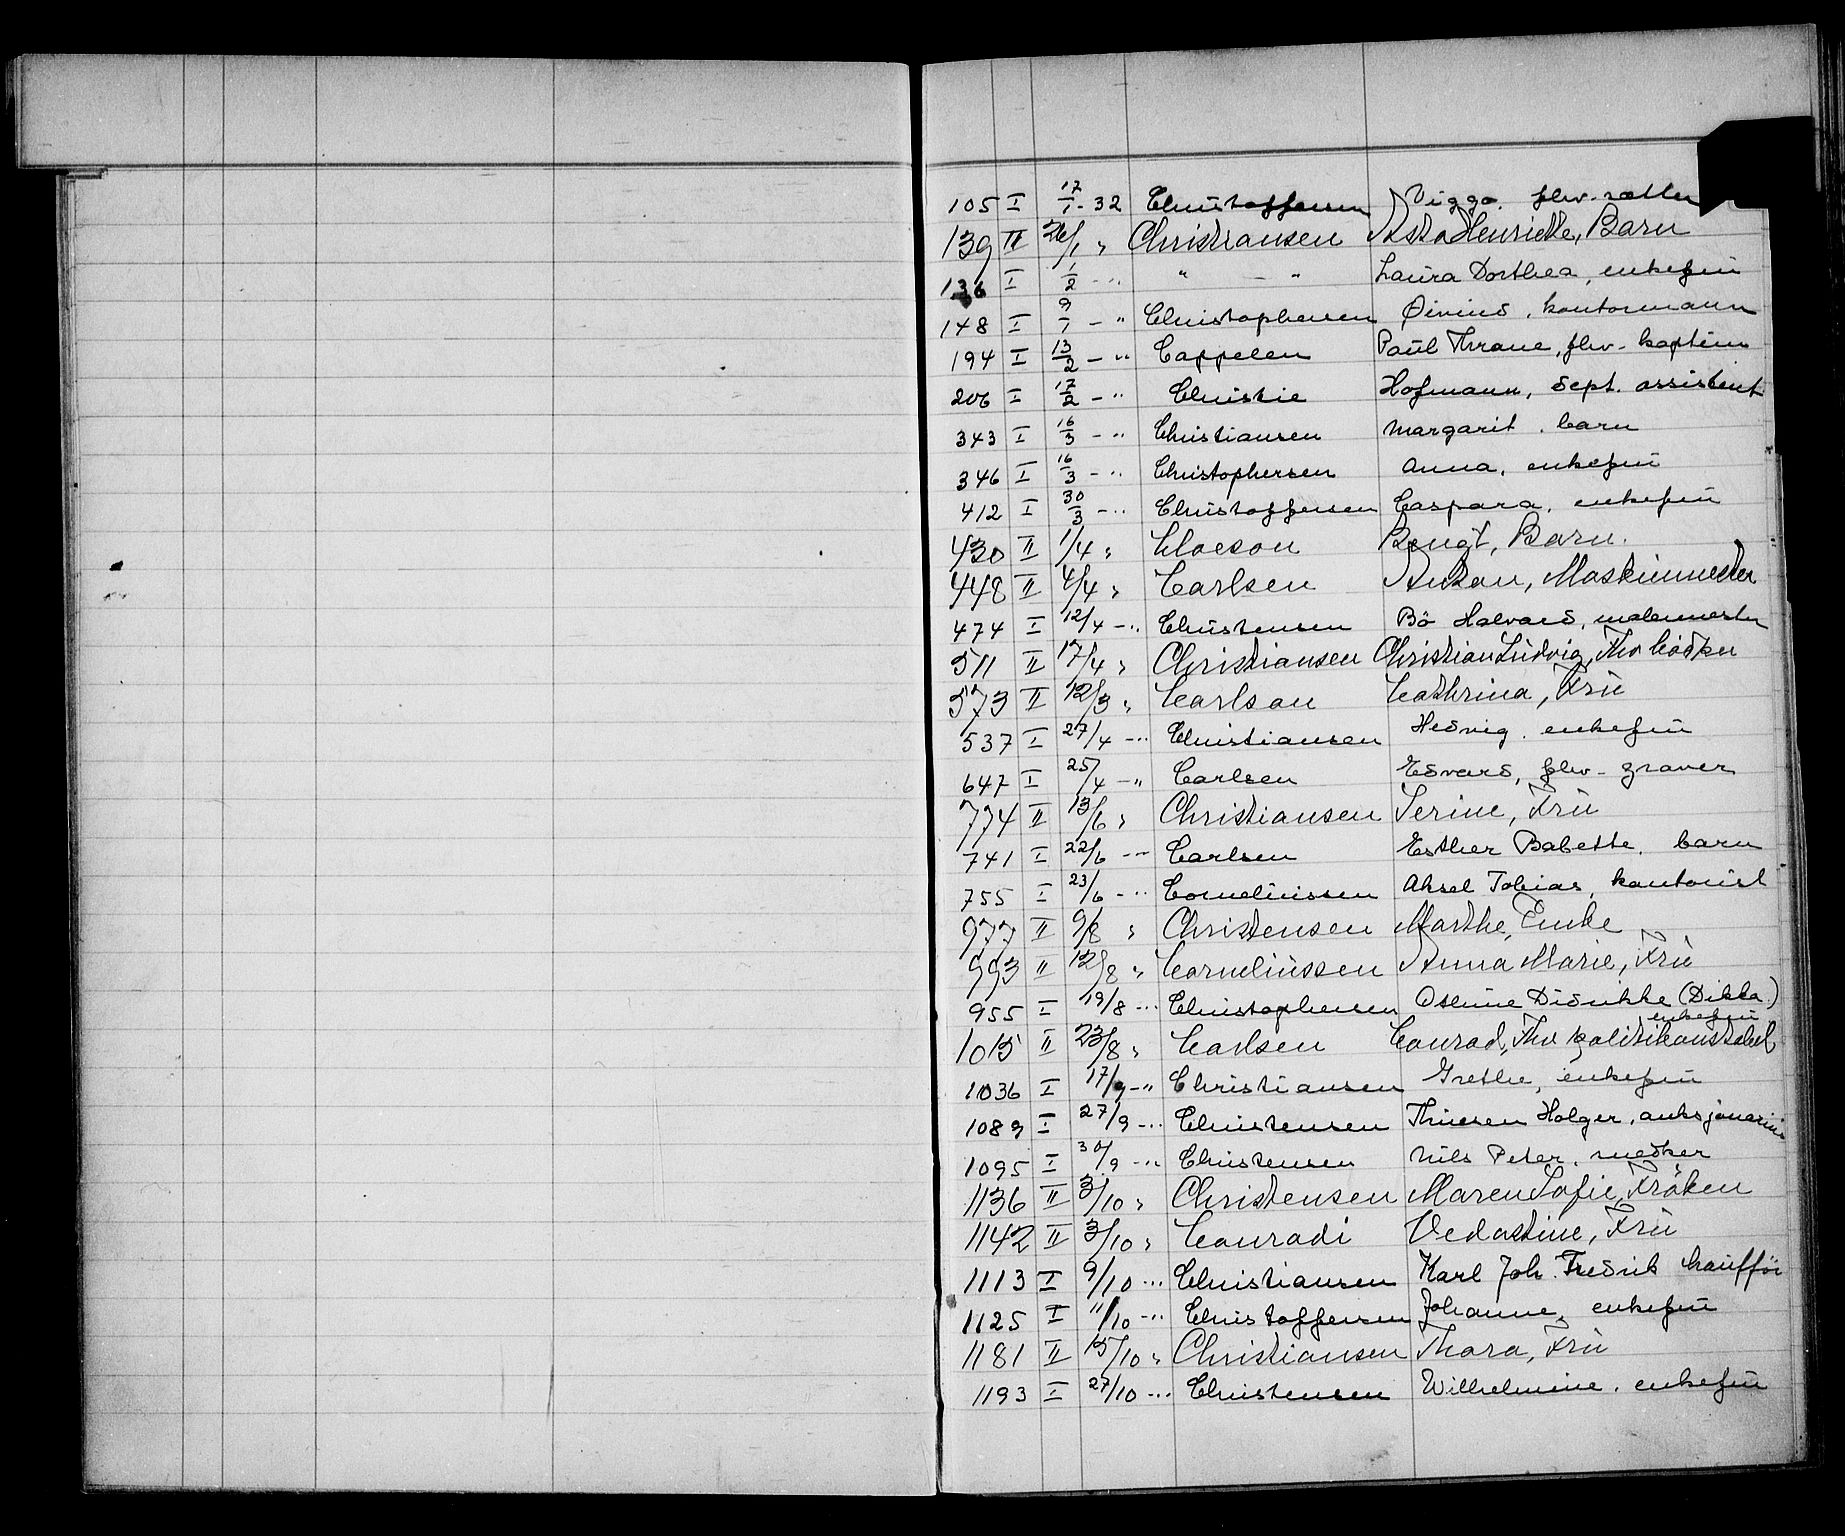 105 I 17/1-32 Christoffersen Viggo. fhv. sætter
139 II 26/1 " Christiansen Asta Henriette, Barn
136 I 1/2 - " " - " Laura Dorthea, enkefrü
148 I 9/1 - " Christophersen Øivind, kontormann
194 I 13/2 - " Cappelen Paul Thrane, fhv. kaptein
206 I 17/2 - " Christie Hofmann, dept. assistent
343 I 16/3 - " Christiansen Margarit. barn
346 I 16/3 - " Christophersen Anna, enkefrü
412 I 30/3 - " Christoffersen Caspara, enkefrü
430 II 1/4 " Claeson Bengt, Barn.
448 II 4/4 " Carlsen Anton, Maskinmester
474 I 12/4 - " Christensen Bö Halvard, malermester
511 II 17/4 " Christiansen Christian Ludvig, Fhv
573 II 12/3 " Carlson Cathrina, Frü
537 I 27/4 - " Christiansen Hedvig. enkefrü
647 I 25/4 - " Carlsen Edvard, fhv. graver
774 II 13/6 " Christiansen Serine, Frü
741 I 22/6 - " Carlsen Esther Babette. barn
755 I 23/6 - " Corneliussen Aksel Tobias, kontorist
977 II 9/8 " Christensen Marthe, Enke
993 II 12/8 " Corneliüssen Anna Marie, Frü
955 I 19/8 - " Christophersen Oseline Didrikke (Dikka)
enkefrü
1015 II 23/8 " Carlsen Conrad, Fhv politikonstabel
1036 I 17/9 - " Christiansen Grethe, enkefrü
1089 I 27/9 - " Christensen Thiesen Holger, auksjonarius
1095 I 30/9 - " Christensen Nils Peter. snedker
1136 II 3/10 " Christensen Maren Sofie, Fröken
1142 II 3/10 " Conradi Vedastine, Frü
1113 I 9/10 - " Christiansen Karl Joh. Fredrik chauffør
1125 I 11/10 - " Christoffersen Johanne, enkefrü
1181 II 15/10 " Christiansen Thora, Frü
1193 I 27/10 - " Christensen Wilhelmine. enkefrü